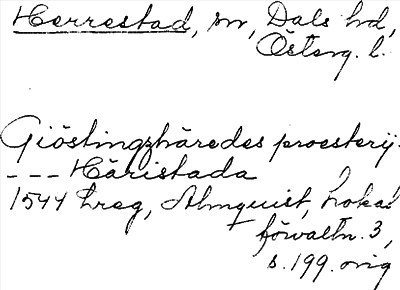 Herrestad, sn, Dals hd,
Österg. l.
Giöstingzhäredes proesterij
--- Häristada
1544 hreg, Almquist, Lokal
förvaltn. 3,
s. 199. orig